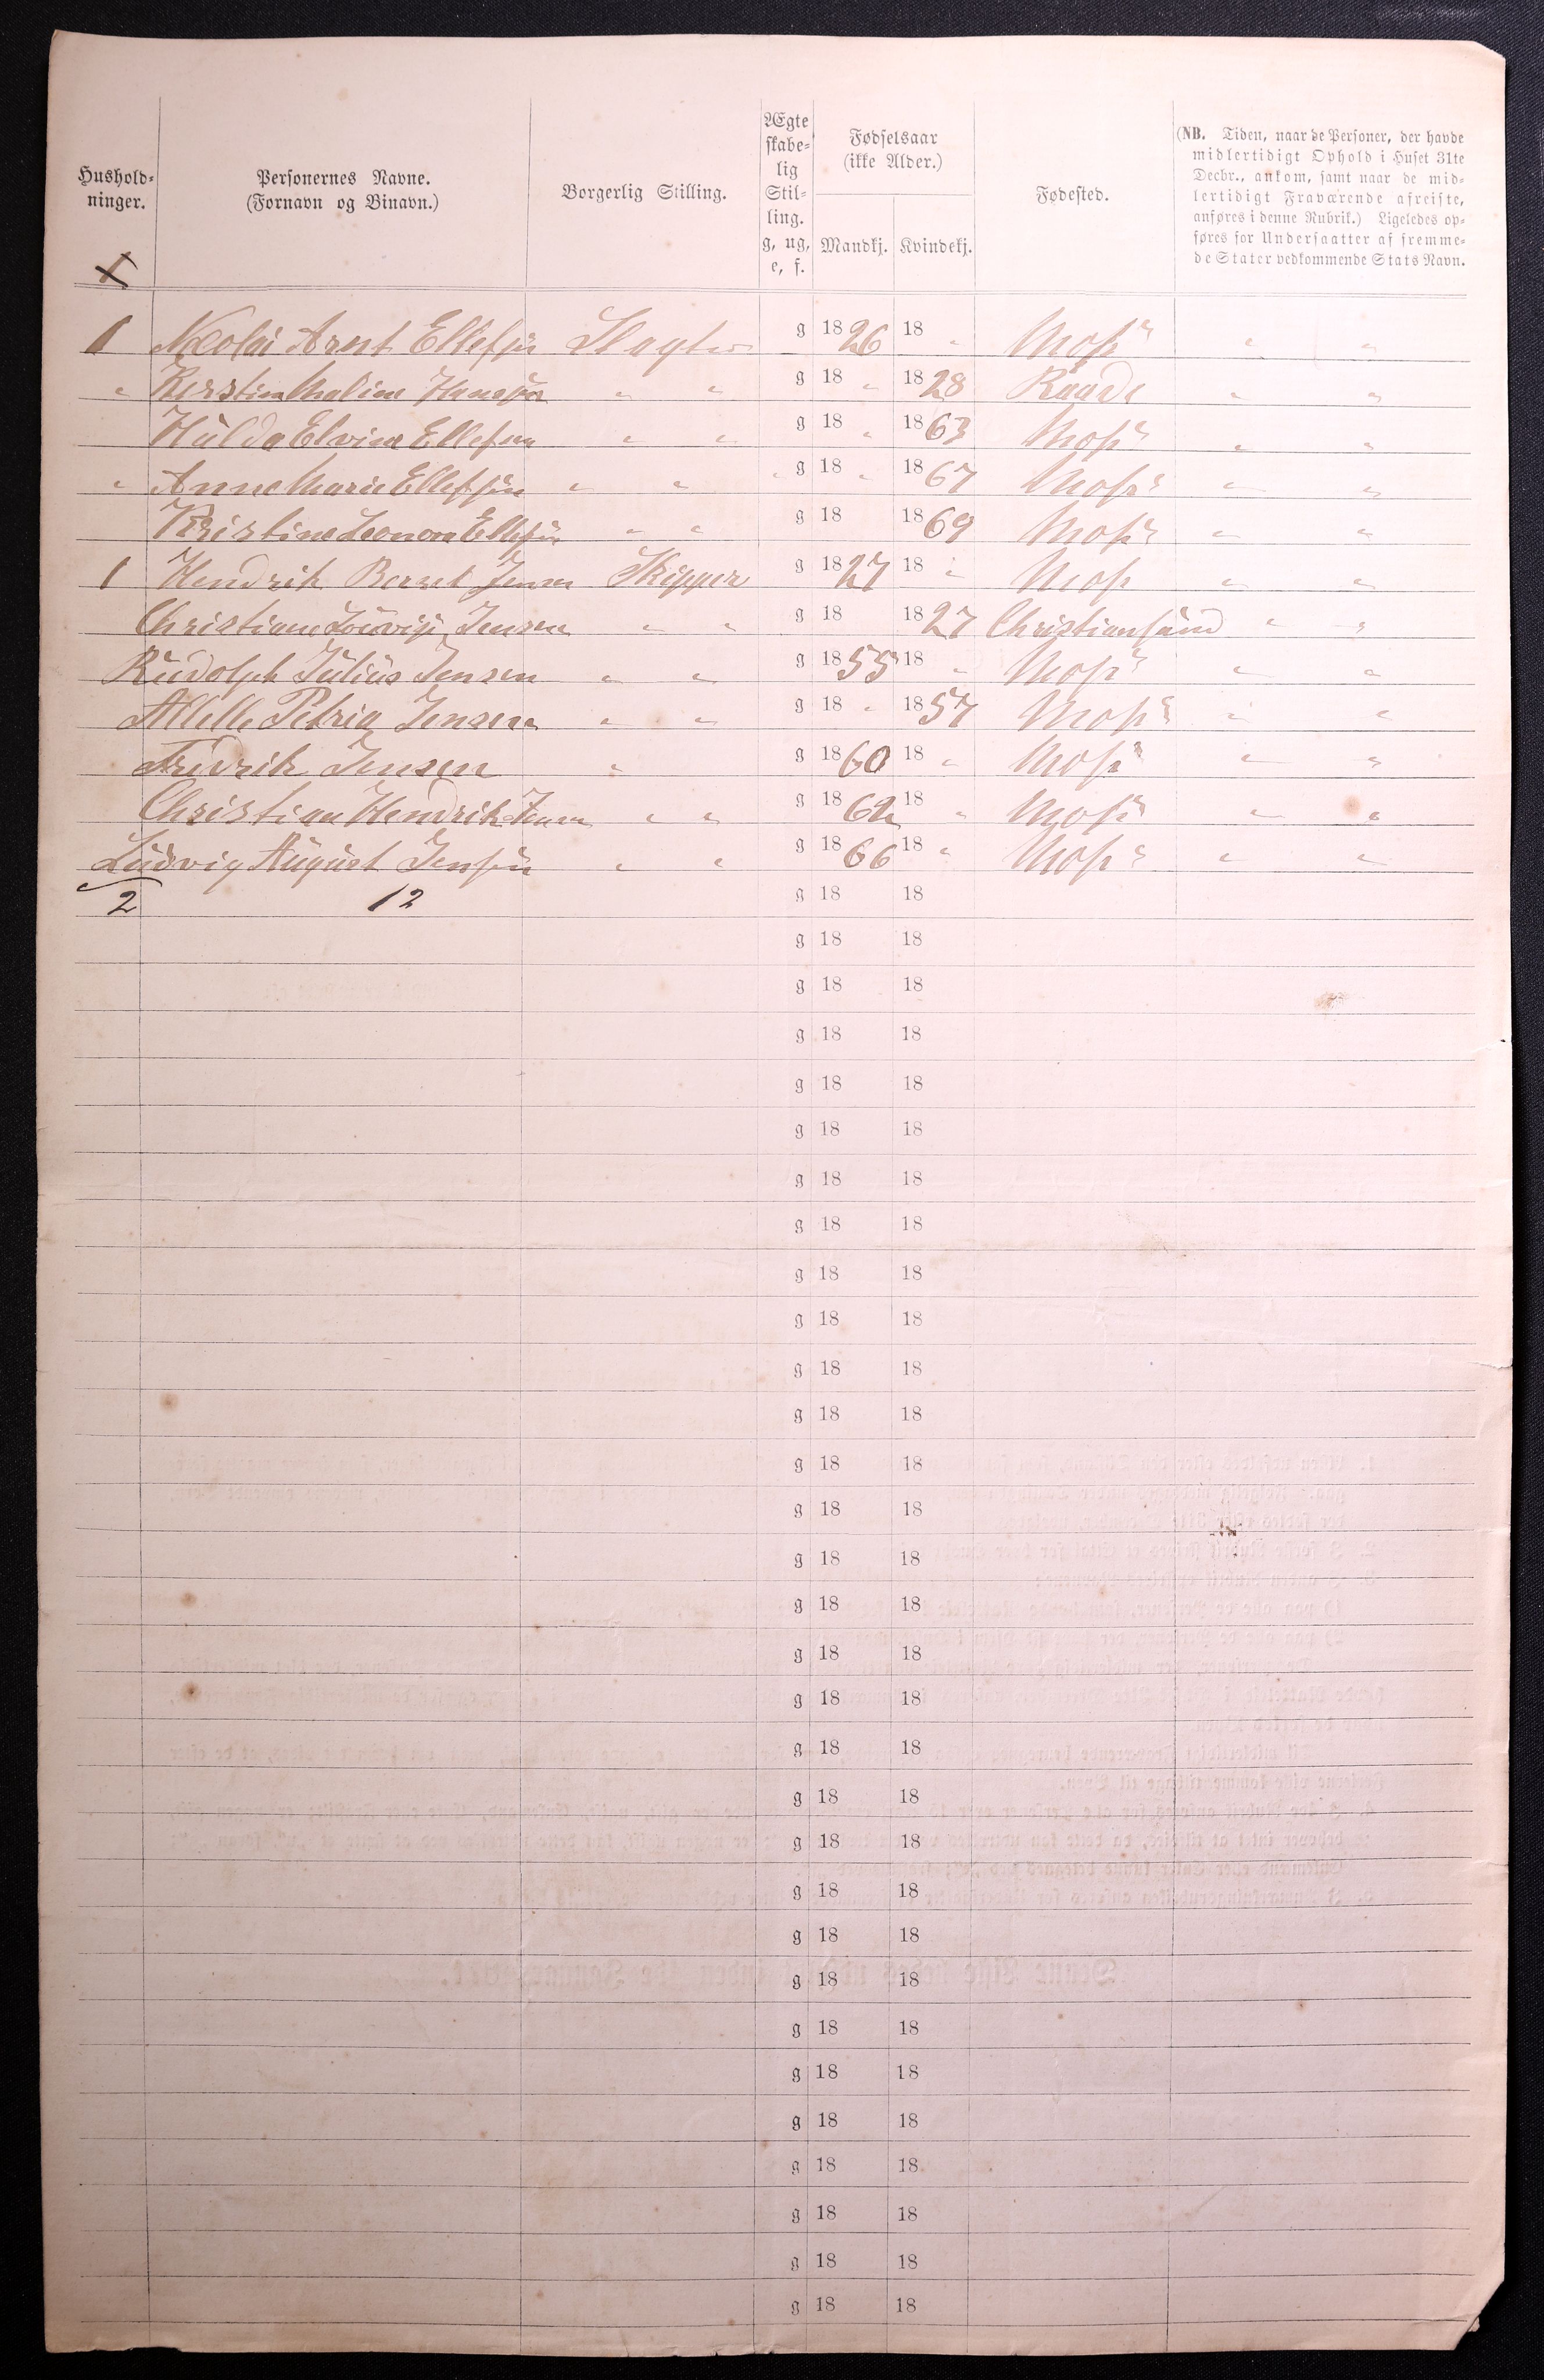 Hushold-
ninger.
Personernes Navne.
(Fornavn og Binavn.)
Borgerlig Stilling.
Ægte
skabe-
lig
Stil-
ling.
g, ug,
e, f.
Fødselsaar
(ikke Alder.)
Mandkj. Kvindekj.
Fødested.
(NB. Tiden, naar de Personer, der havde
midlertidigt Ophold i Huset 31te
Decbr., ankom, samt naar de mid-
lertidigt Fraværende afreiste,
anføres i denne Rubrik.) Ligeledes op-
føres for Undersaatter af fremme-
de Stater vedkommende Stats Navn.
1 Nicolai Arnt Ellefsen Slagter g 1826 18 " Moss " "
" Kirstin Maline Hansen " " g 18 " 1828 Raade " "
Hulda Elvina Ellefsen " " g 18 " 1863 Moss " "
" Anne Marie Ellefsen " " g 18 " 1867 Moss " "
Kristine Leonora Ellefsen " " g 18 1869 Moss " "
1 Hendrik Jensen Skipper g 1827 18 " Moss " "
Christiane Lovise Jensen " " g 18 1827 Christiansund " "
Rudolph Julius Jensen " " g 1855 18 " Moss " "
Petria Jensen " " g 18 " 1857 Moss " "
Fridrik Jensen " g 1860 18 " Moss " "
Christian Hendrik Jensen " " g 1862 18 " Moss " "
Ludvig August Jensen " " g 1866 18 " Moss " "
2 12 g 18 18
g 18 18
g 18 18
g 18 18
g 18 18
g 18 18
g 18 18
g 18 18
g 18 18
g 18 18
g 18 18
g 18 18
g 18 18
g 18 18
g 18 18
g 18 18
g 18 18
g 18 18
g 18 18
g 18 18
g 18 18
g 18 18
g 18 18
g 18 18
g 18 18
g 18 18
g 18 18
g 18 18
g 18 18
g 18 18
g 18 18